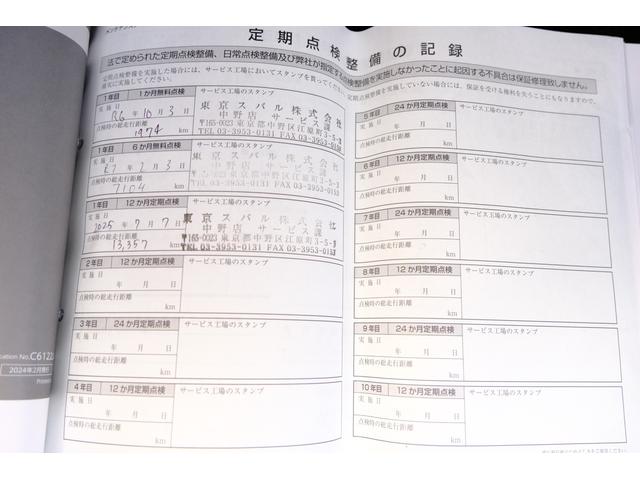 定期点検整備の記録
法で定められた定期点検整備、日常点検整備及び弊社が指定する点検整備を実施しなかったことに起因する不具合は保証修理致しません。
定期点検整備を実施した場合には、サービス工場においてスタンプを買ってください。
定期点検整備を実施していない場合には、保証を受ける権利を失うことにもなりますので、
確実に実施してください。
1年目 1か月無料点検
実施日 R6年10月3日
点検時の総走行距離
1974 km
東京スバル株式会社
中野店 サービス課
〒165-0023 東京都中野区江原町3-35-8
TEL 03-3953-0131 FAX 03-3953-
1年目 6か月無料点検
実施日 R7年2月3日
点検時の総走行距離
7104 km
東京スバル株式会社
中野店 サービス課
〒165-0023 東京都中野区江原町3-35-8
TEL 03-3953-0131 FAX 03-3953-
1年目 12か月定期点検
実施日 2025年7月7日
点検時の総走行距離
13,357 km
東京スバル株式会社
中野店 サービス課
〒165-0023 東京都中野区江原町3-5-8
TEL 03-3953-0131 FAX 03-3953-
2年目 12か月定期点検 サービス工場のスタンプ
実施日 年 月 日
点検時の総走行距離
km
3年目 24か月定期点検 サービス工場のスタンプ
実施日 年 月 日
点検時の総走行距離
km
4年目 12か月定期点検 サービス工場のスタンプ
実施日 年 月 日
点検時の総走行距離
km
5年目 24か月定期点検 サービス工場のスタンプ
実施日 年 月 日
点検時の総走行距離
km
6年目 12か月定期点検 サービス工場のスタンプ
実施日 年 月 日
点検時の総走行距離
km
7年目 24か月定期点検 サービス工場のスタンプ
実施日 年 月 日
点検時の総走行距離
km
8年目 12か月定期点検 サービス工場のスタンプ
実施日 年 月 日
点検時の総走行距離
km
9年目 24か月定期点検 サービス工場のスタンプ
実施日 年 月 日
点検時の総走行距離
km
10年目 12か月定期点検 サービス工場のスタンプ
実施日 年 月 日
点検時の総走行距離
km
cation No.C6122
2024年2月発行